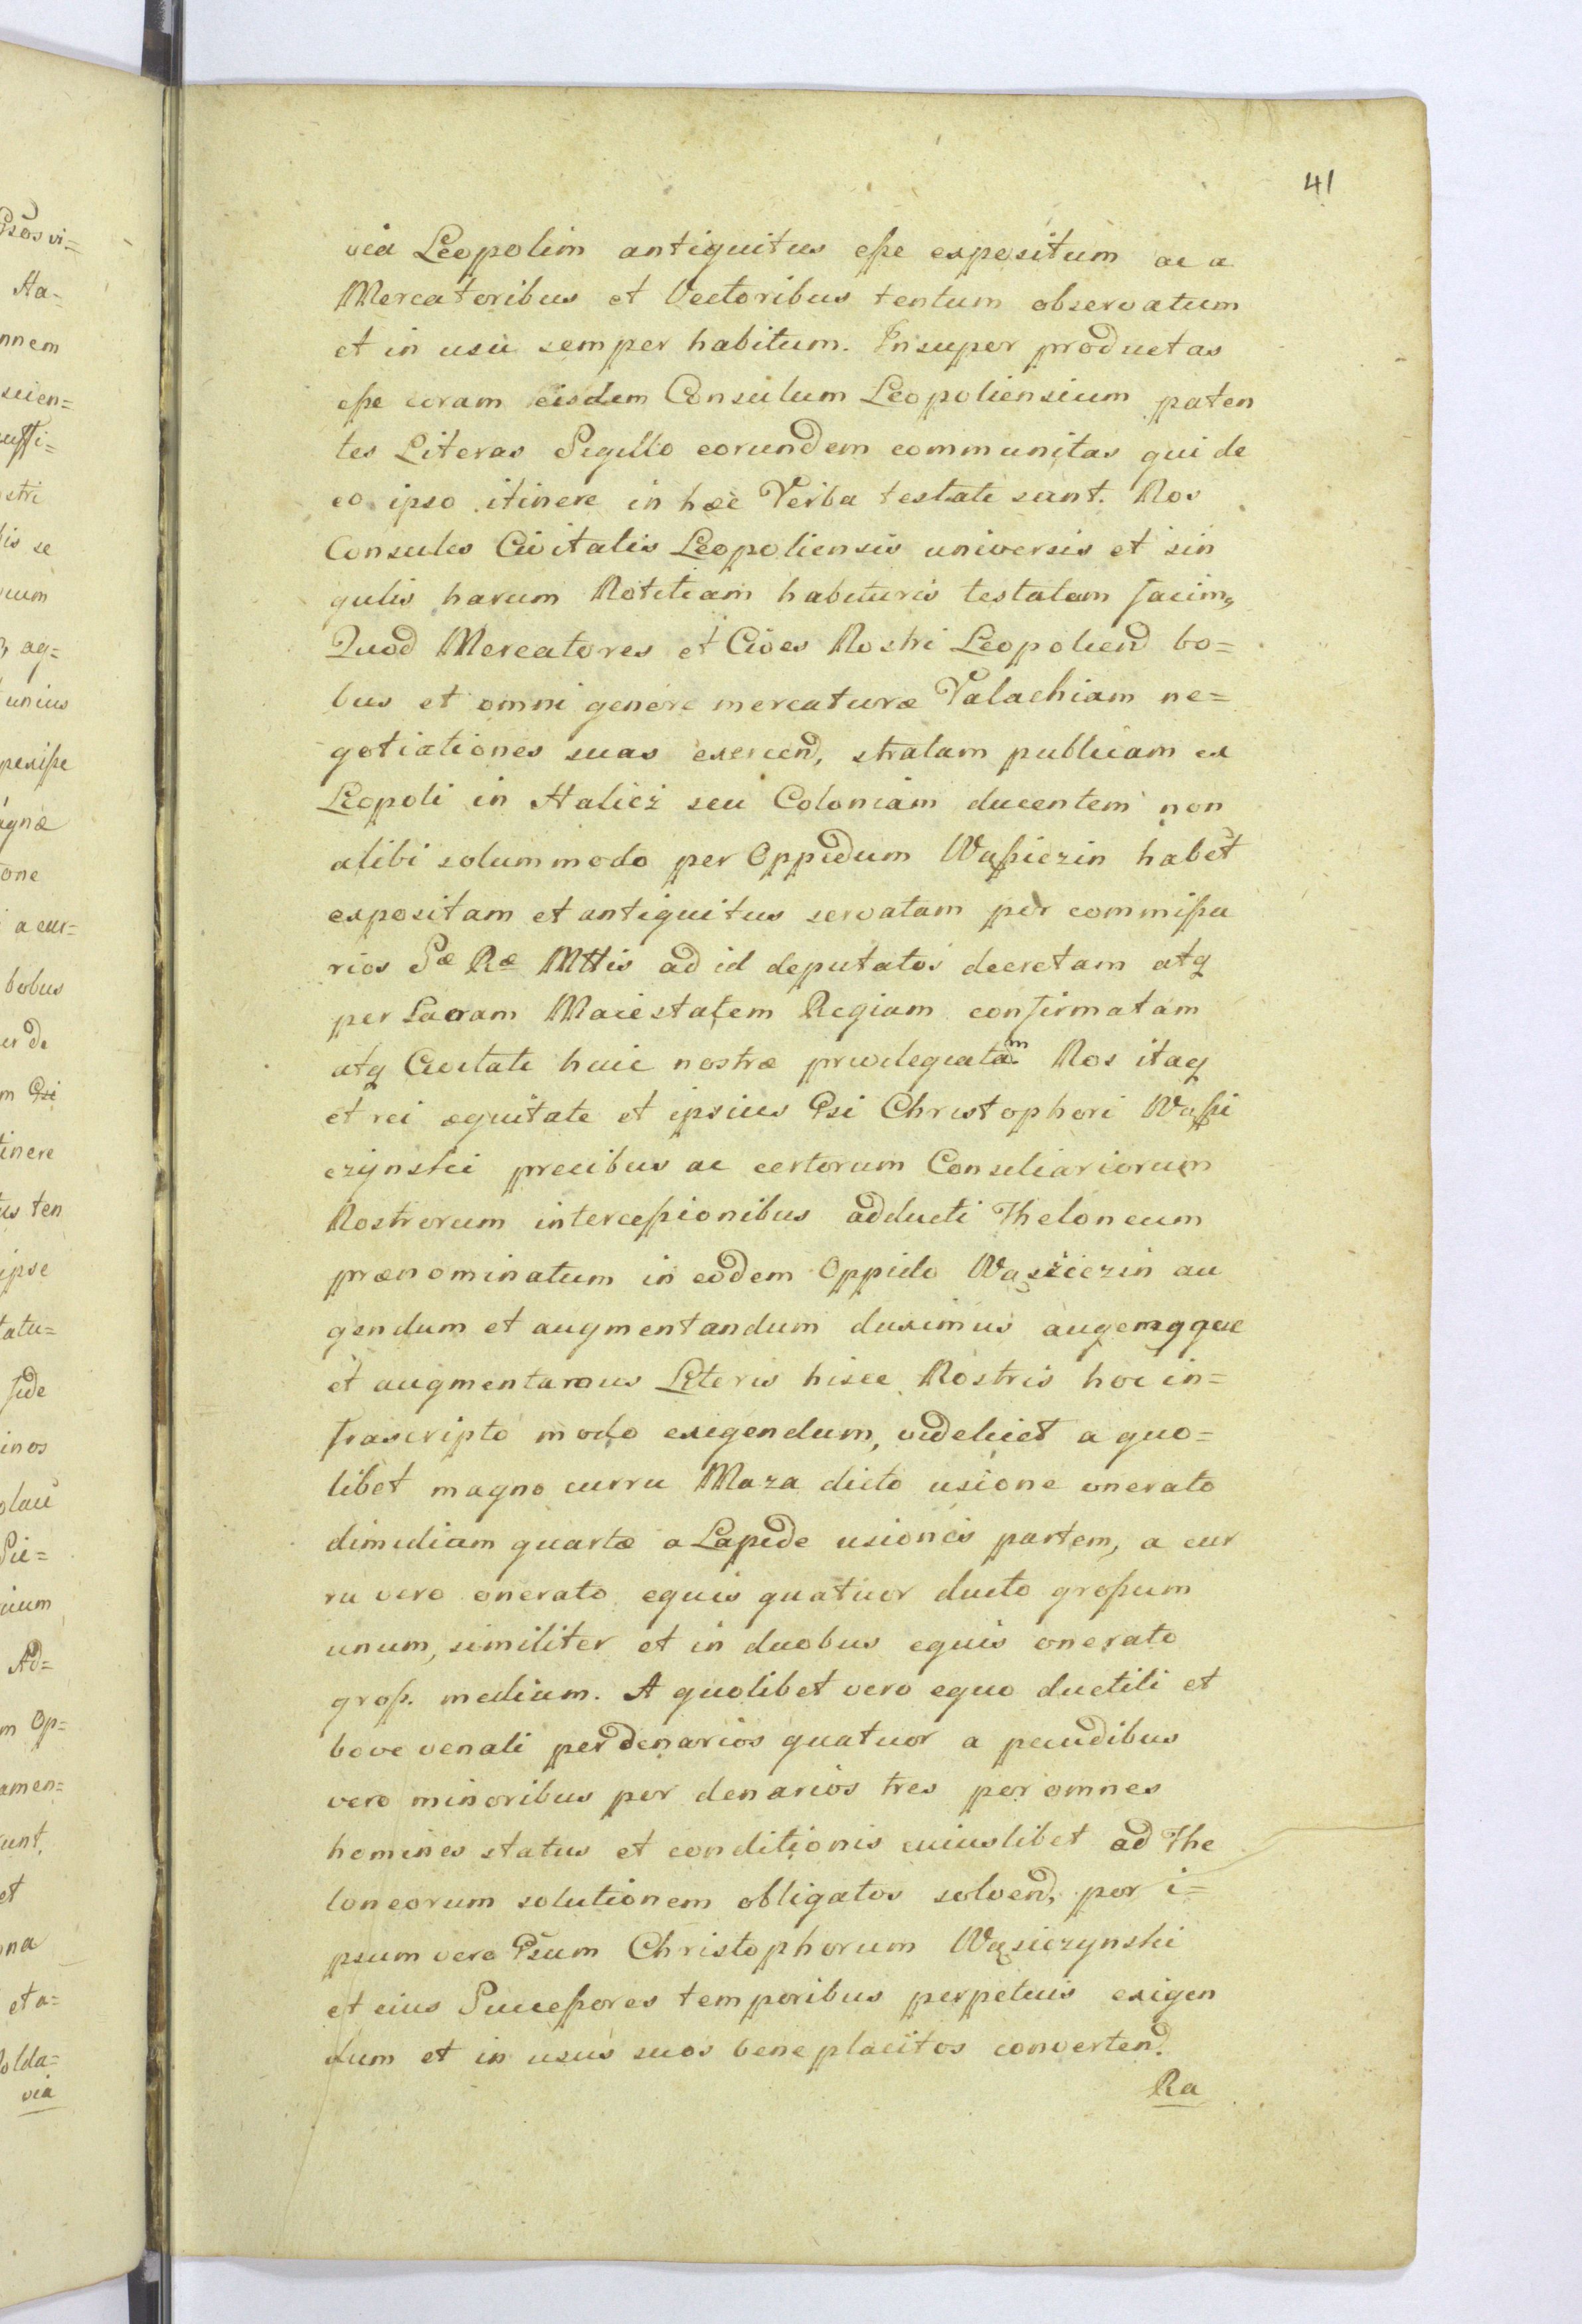 41
via Leopolim antiquitus eße expositum ac a
Mercatoribus et Vectoribus tentum observatum
et in usu semper habitum. Insuper productas
eße coram eisdem Consulum Leopoliensium paten
tes Literas Sigillo eorundem communitas qui de
eo ipso itinere in hæc Verba testati sunt. Nos
Consules Civitatis Leopoliensis universis et sin
gulis harum Notitiam habituris testatam facim,
Quod Mercatores et Cives Nostri Leopoliend bo=
bus et omni genere mercaturæ Valachiam ne=
gotiationes suas exercend, stratam publicam ex
Leopoli in Halicz seu Coloniam ducentem non
alibi solummodo per Oppidum Waßiczin habet
expositam et antiquitus servatam per commißa
rios Sæ Ræ Mttis ad id deputatos decretam atq
per Sacram Maiestatem Regiam confirmatam
atq Civitati huic nostræ privilegiatam. Nos itaq
et rei æquitate et ipsius Gsi Christophori Waßi
czynski precibus ac certorum Consiliariorum
Nostrorum interceßionibus adducti Theloneum
prænominatum in eodem Oppido Wasziczin au
gendum et augmentandum duximus augemqque
et augmentamus Literis hisce Nostris hoc in=
frascripto modo exigendum, videlicet a quo=
libet magno curru Maza dicto usione onerato
dimidiam quartæ a Lapide usionis partem, a cur
ru vero onerato equis quatuor ducto großum
unum, similiter et in duobus equis onerato
groß. medium. A quolibet vero equo ductili et
bove venali per denarios quatuor a pecudibus
vero minoribus per denarios tres per omnes
homines status et conditionis cuiuslibet ad The
loneorum solutionem obligatos solvend, per i=
psum vero Gsum Christophorum Wasiczynski
et eius Succeßores temporibus perpetuis exigen
dum et in usus suos beneplacitos convertend.
Ra